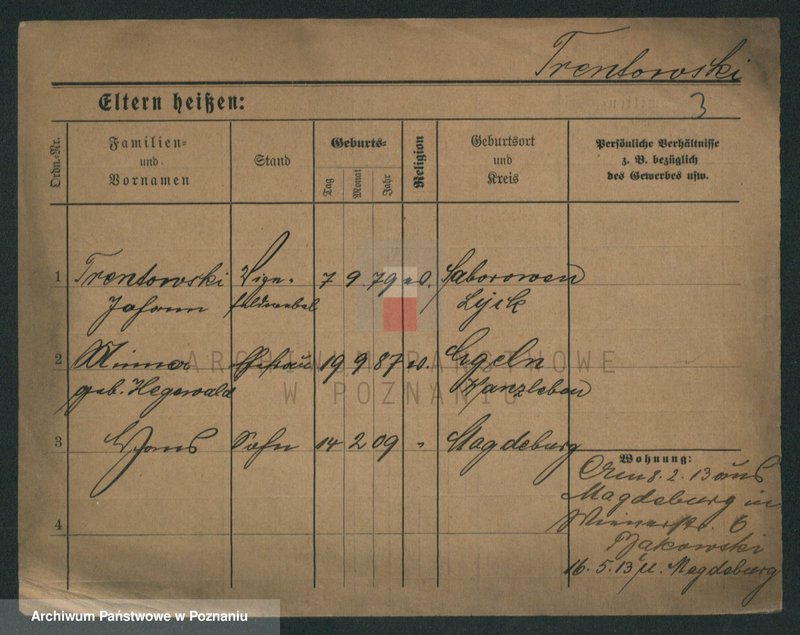 Trentowski
3
Eltern heißen:
Ordn.-Nr.
Familien-
und
Vornamen
Stand
Geburts-
Tag
Monat
Jahr
Religion
Geburtsort
und
Kreis
Persönliche Verhältnisse
z. B. bezüglich
des Gewerbes usw.
1 Trentowski Vize- 7 9 79 ev. Saborowen
Johann feldwebel Lyck
2 Minna Ehefrau 19 9 87 ev. Egeln
geb. Hegewald Wanzleben
3 Hans Sohn 14 2 09 " Magdeburg
4
Wohnung:
8. 2. 13 aus
Magdeburg in
6
16. 5. 13 n. Magdeburg
ARCHIWUM PAŃSTWOWE
W POZNANIU
Archiwum Państwowe w Poznaniu